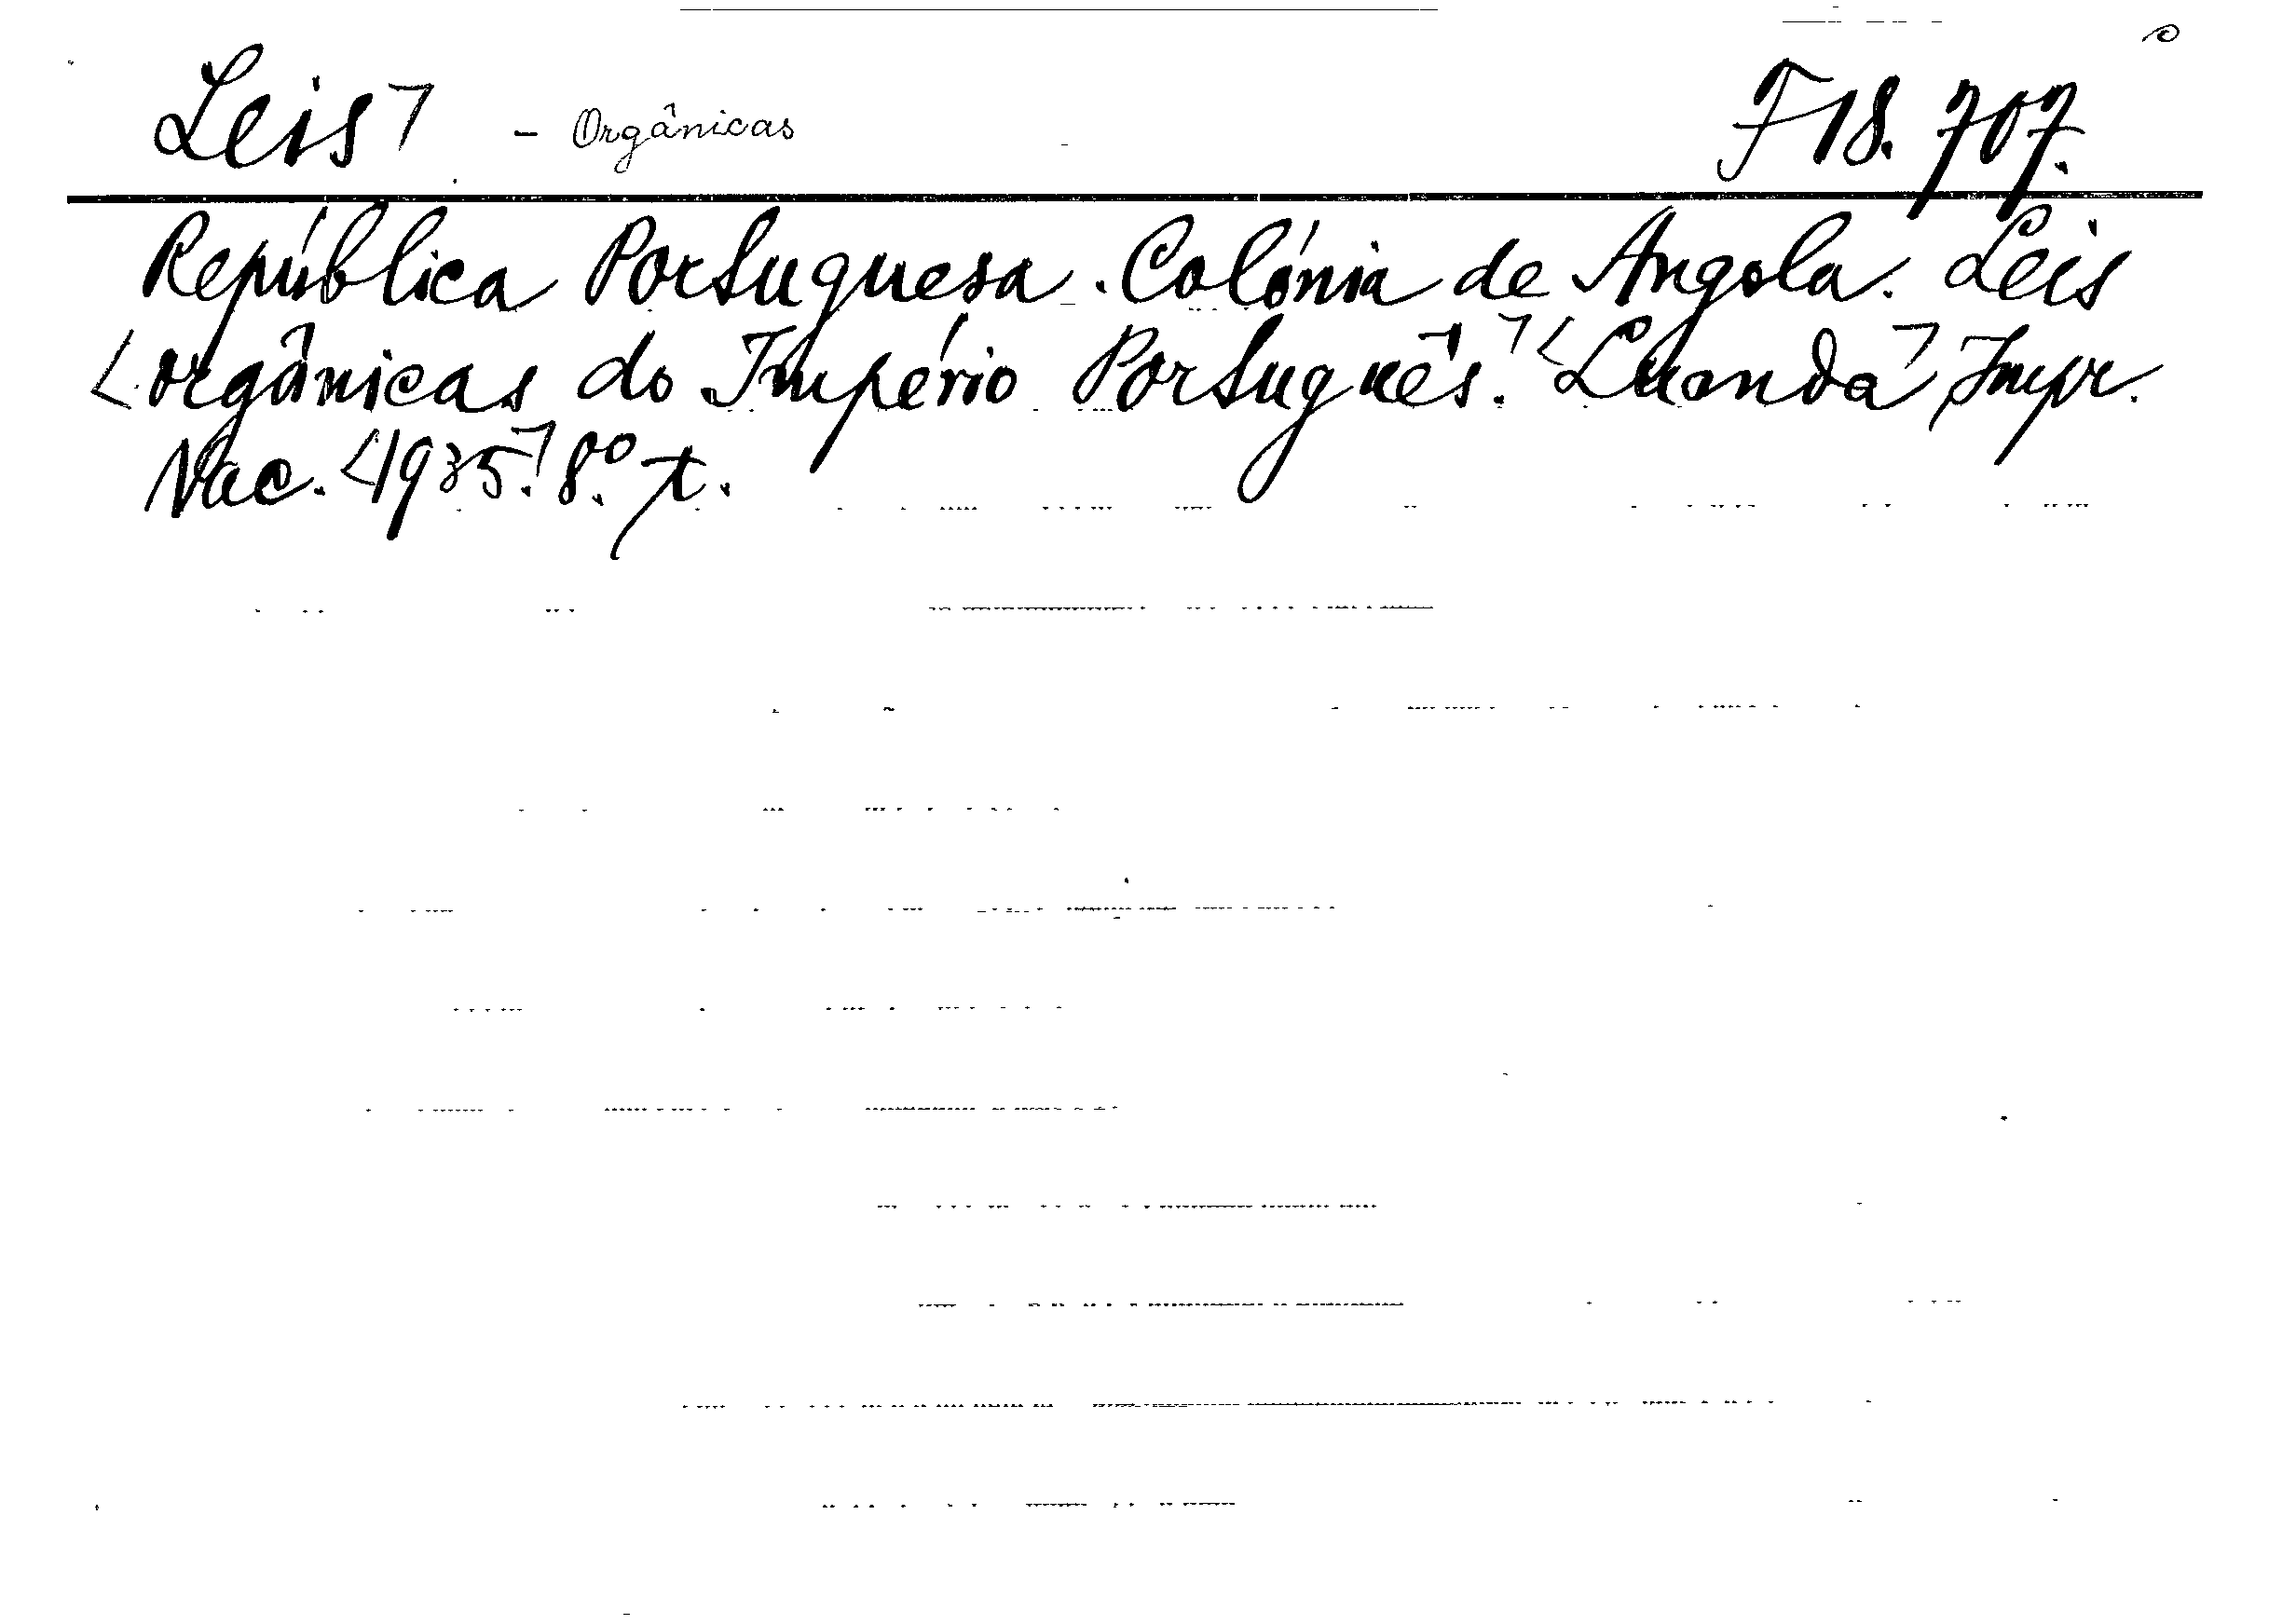 Leis - Orgânicas F18.707.
República Portuguesa. Colónia de Angola. Leis
orgânicas do Império Português. Luanda Impr.
Nac. 1935. 8.º